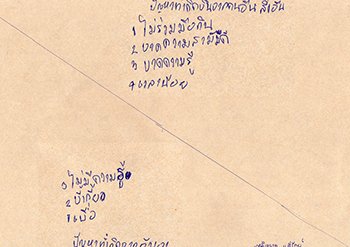 ปัญหาที่เกิดขึ้นจากคนอื่น
1 ไม่ร่วมมือกัน
2 ขาดความสามัคคี
3 ขาดความรู้
4 เวลาน้อย
3 ไม่มีความรู้
2 ขี้เกียจ
1 เบื่อ
ปัญหาที่เกิดจาก